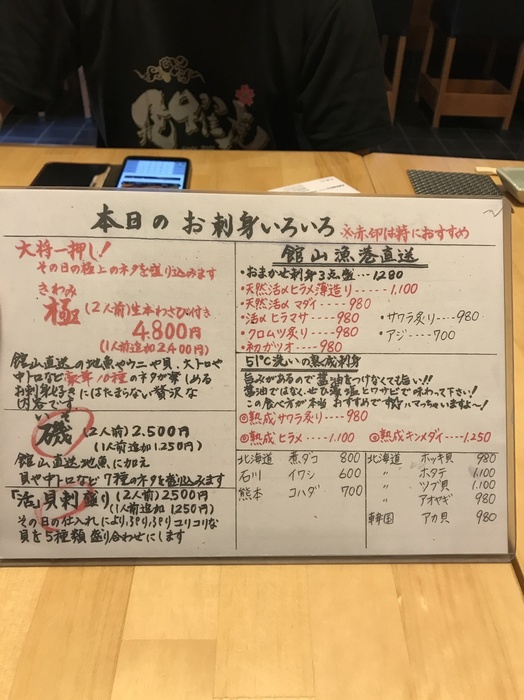 本日の お刺身いろいろ ※赤印は特におすすめ
大将一押し!
その日の極上のネタを盛り込みます
きわみ
極 (2人前)生本わさび付き
4.800円
(1人前追加2400円)
館山直送の地魚やウニや貝、大トロや
中トロなど豪華10種のネタが楽しめる
お刺身好きにはたまらない贅沢な
内容です
いそ
磯 (2人前)2.500円
(1人前追加1.250円)
館山直送地魚に加え
貝や中トロなど7種のネタを盛込みます
「活」貝刺盛り(2人前)2500円
(1人前追加1250円)
その日の仕入れにより、コリコリな
貝を5種類盛り合わせにします
館山漁港直送
・おまかせ刺身3点盛...1280
・天然活〆ヒラメ薄造り------1,100
・天然活〆マダイ----980
・活〆ヒラマサ----980
・クロムツ炙り----980
・初ガツオ----980
・サワラ炙り----980
・アジ----700
51℃洗いの熟成刺身
旨みがあるので醤油をつけなくても旨い!!
醤油ではなく、ぜひ藻塩とワサビで味わって下さい!
この食べ方が本当おすすめで皆ハマっちゃいますよ〜!
◎熟成サワラ炙り----980
◎熟成ヒラメ----1.100 ◎熟成キンメダイ----1,250
北海道 煮ダコ 800
石川 イワシ 600
熊本 コハダ 700
北海道 ホッキ貝 980
〃 ホタテ 1.100
〃 ツブ貝 1.100
〃 アオヤギ 980
韓国 アカ貝 980